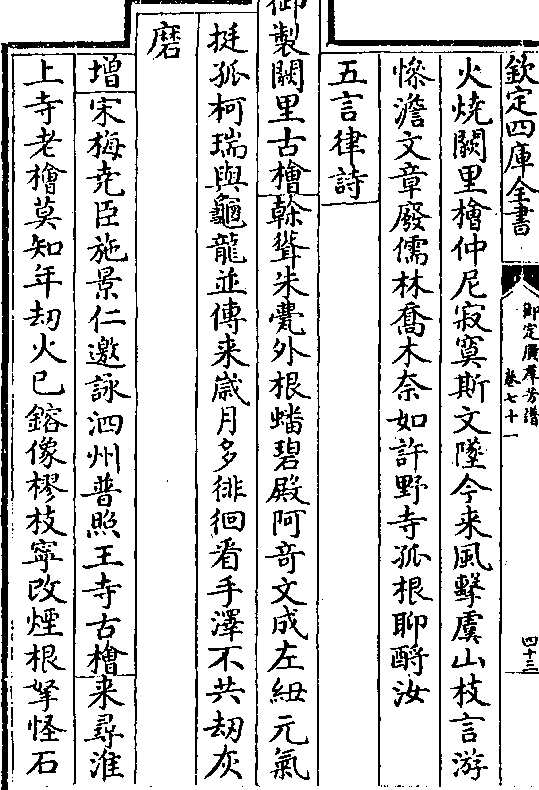 欽定四庫全書
御定廣羣芳譜
卷七十一
四十三
火燒闕里檜仲尼寂寞斯文墜今来風擊虞山枝言游
惨澹文章廢儒林喬木奈如許野寺孤根聊酹汝
五言律詩
御製闕里古檜榦聳朱甍外根蟠碧殿阿竒文成左紐元氣
挺孤柯瑞與龜龍並傳来歳月多徘徊看手澤不共刧灰
磨
增宋梅尭臣施景仁邀詠泗州普照王寺古檜来尋淮
上寺老檜莫知年刧火已鎔像樛枝寧改煙根拏怪石